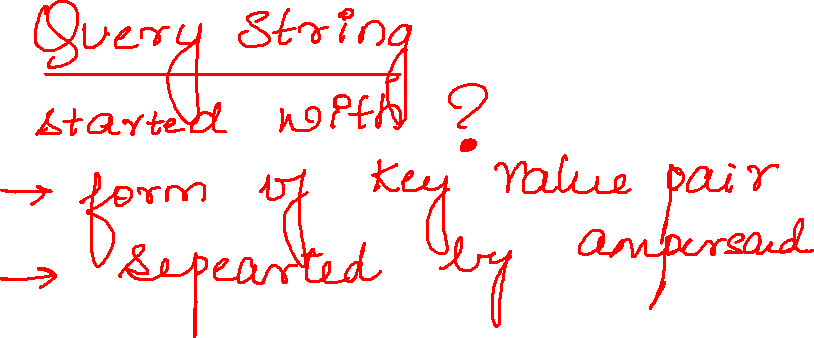 Query String
started with ?
→ form of key value pair
→ sepearted by ampersad